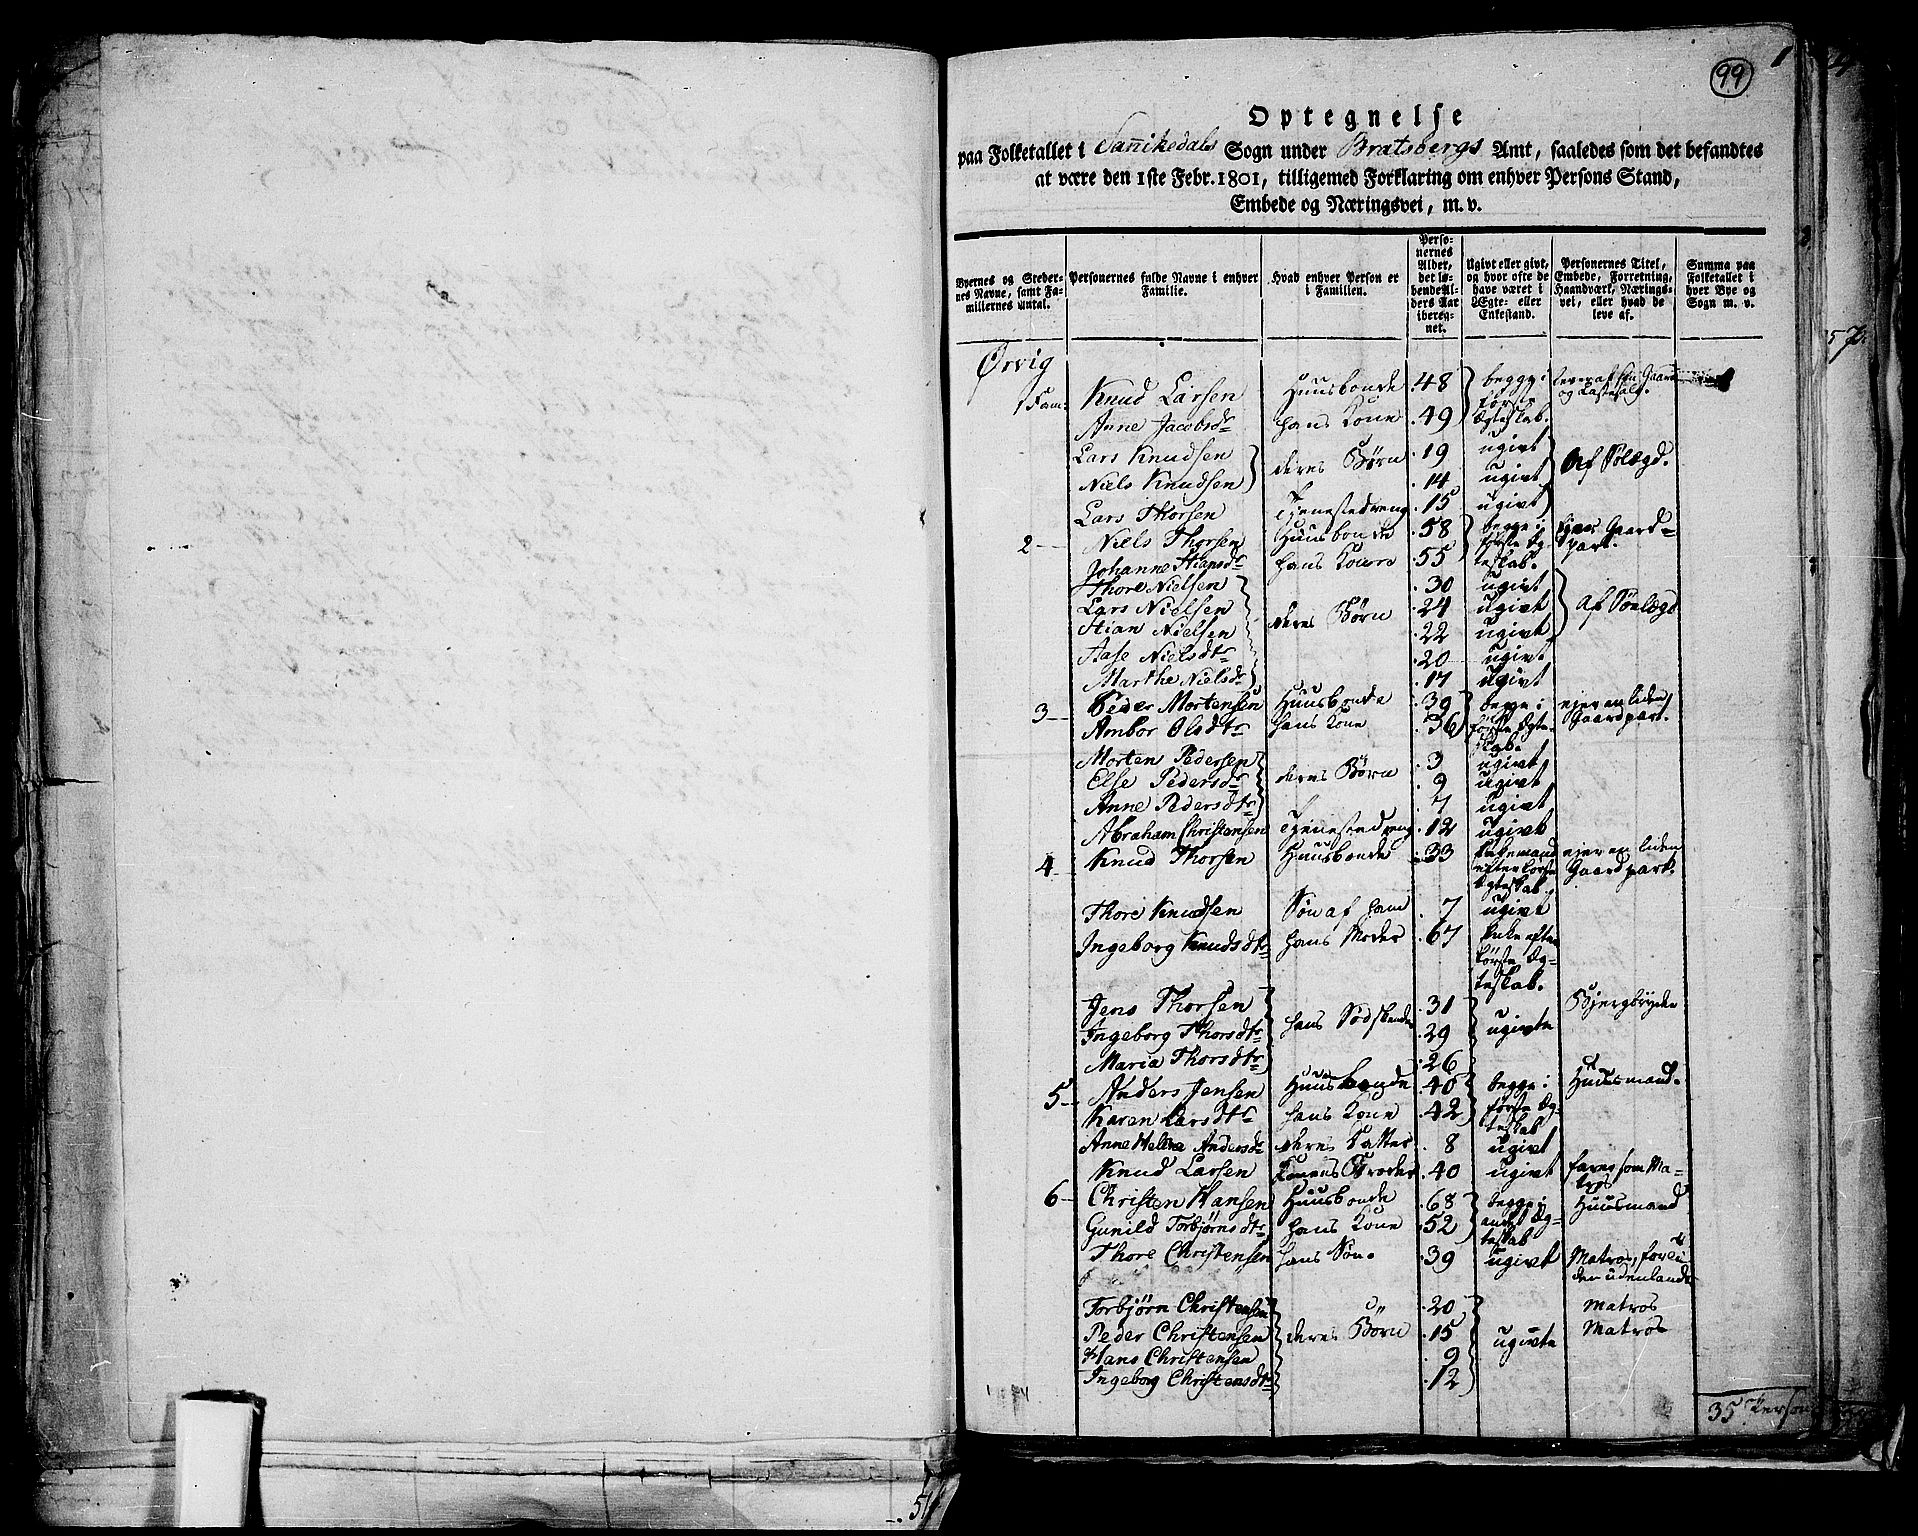 99
1
Optegnelse
paa Folketallet i Sannikedals Sogn under Bratsbergs Amt, saaledes som det befandtes
at være den 1ste Febr. 1801, tilligemed Forklaring om enhver Persons Stand,
Embede og Næringsvei, m. v.
Byernes og Stedernes Navne, samt Familiernes Antal. Personernes fulde Navne i enhver Familie. Hvad enhver Person er i Familien. Personernes Alder, det løbende Alders Aar iberegnet. Ugivt eller givt, og hvor ofte de have været i Ægte- eller Enkestand. Personernes Titel, Embede, Forretning, Haandværk, Næringsvei, eller hvad de leve af. Summa paa Folketallet i hver Bye og Sogn m. v.
Ørvig
1 Fam: Knud Larsen Huusbonde 48 begge i første Ægteskab.
Anne Jacobsdr hans Kone 49
Lars Knudsen deres Børn 19 ugivt
Niels Knudsen 14 ugivt
Lars Thorsen Tjenestedreng 15 ugivt
2 Niels Thorsen Huusbonde 58 begge i første Ægteskab. Gaardpart.
Johanne Stiansdr hans Kone 55
Thore Nielsen deres Børn 30 ugivt
Lars Nielsen 24 ugivt
Stian Nielsen 22 ugivt
Aase Nielsdtr 20 ugivt
Marthe Nielsdr 17 ugivt
3 Peder Mortensen Huusbonde 39 begge i første Ægteskab ejer en liden Gaardpart.
Ambor Olsdtr hans Kone 36
Morten Pedersen deres Børn 3 ugivt
Else Pedersdr 9 ugivt
Anne Pedersdtr 7 ugivt
Abraham Christensen Tjenestedreng 12 ugivt
4 Knud Thorsen Huusbonde 33 Enkemand efter første Ægteskab ejer en liden Gaardpart.
Thore Knudsen Søn af ham 7 ugivt
Ingeborg Knudsdtr hans Moder 67 Enke efter første Ægteskab.
Jens Thorsen hans Sødskende 31 ugivte Bjergbryder
Ingeborg Thorsdtr 29
Maria Thorsdtr 26
5 Anders Jensen Huusbonde 40 begge i første Ægteskab Huusmand.
Karen Larsdtr hans Kone 42
Anne Helene Andersdr deres Datter 8 ugivt
Knud Larsen Konens Broder 40 ugivt farer som Matros
6 Christen Hansen Huusbonde 68 begge i andet Ægteskab Huusmand
Gunild Torbjørnsdtr hans Kone 52
Thore Christensen hans Søn. 39 ugivt Matros,
Torbjørn Christensen deres Børn 20 ugivte Matros
Peder Christensen 15 Matros
Hans Christensen 9
Ingeborg Christensdtr 12
35